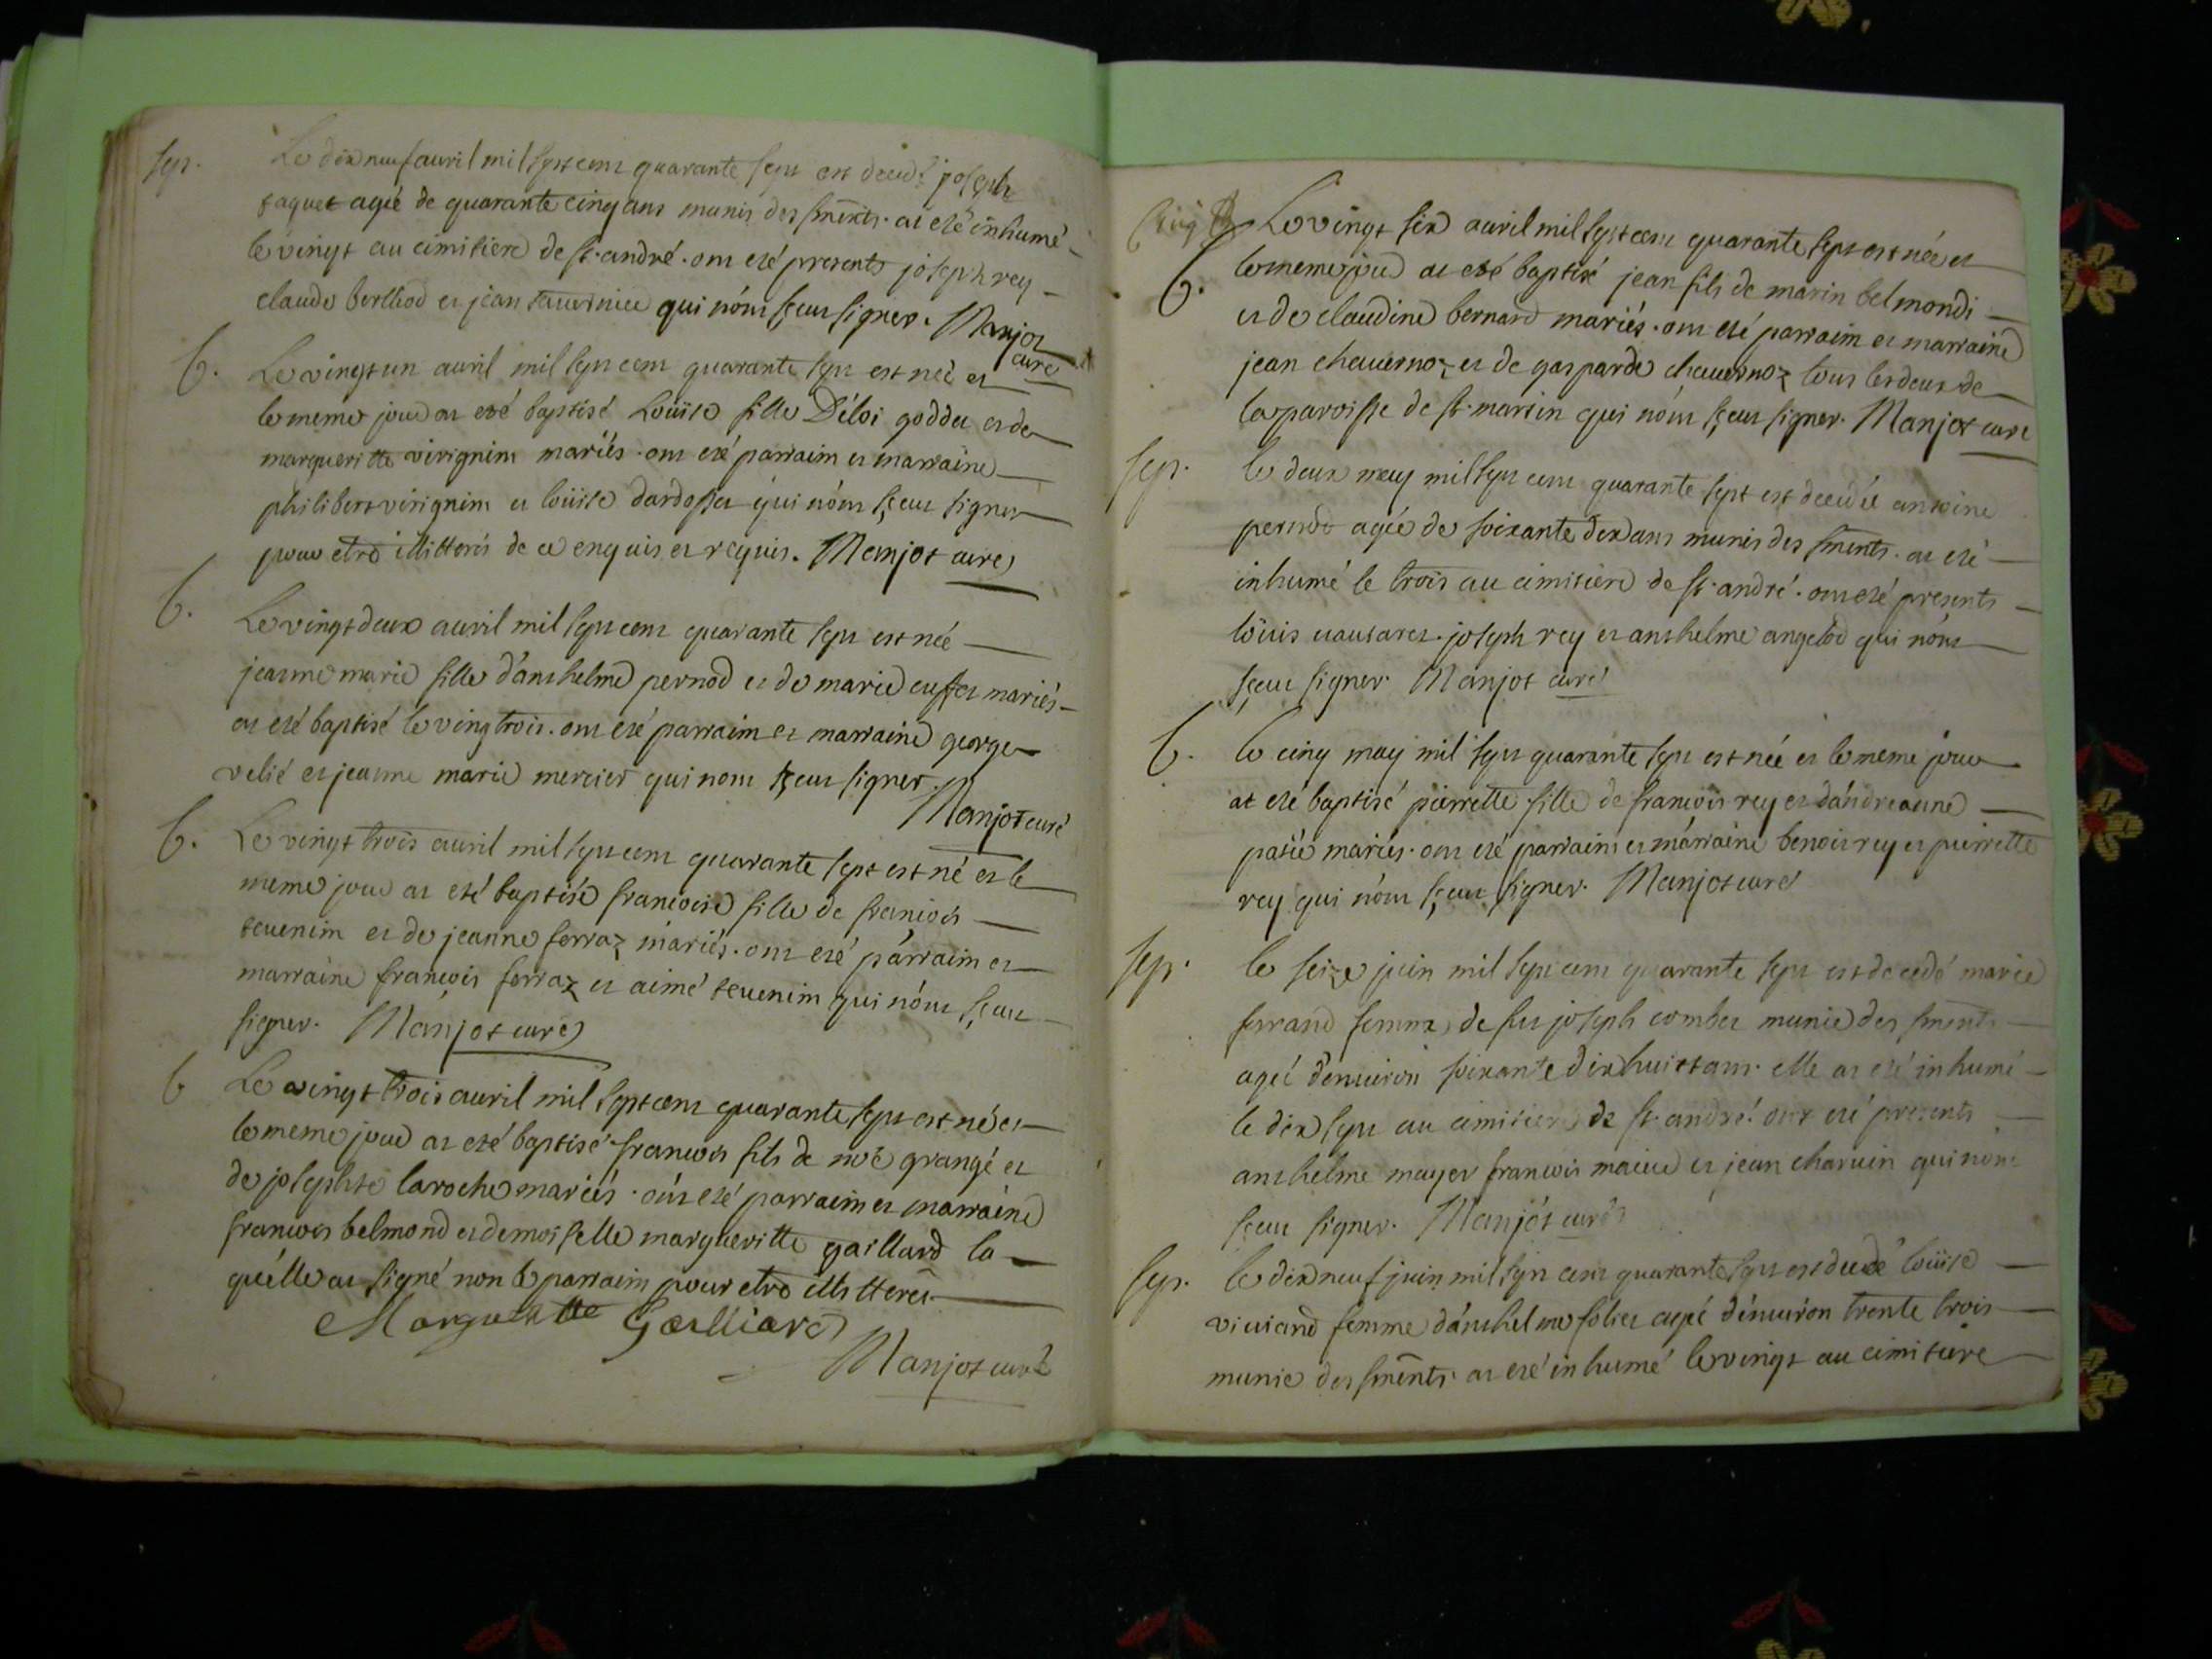 sep. Le dix neuf auril mil sept cent quarante sept est decedé joseph
jaquet agé de quarante cinq ans munis des sments. at eté inhumé
le vingt au cimitiere de st. andré. ont eté presents joseph rey
claude berthod et jean qui n'ont sçeut signer. Manjot
curé
b. Le vingt un auril mil sept cent quarante sept est neé et
le meme jour at eté baptisé Loüise fille D'éloi goddet et de
margueritte virignim mariés. ont eté parraim et marraine
philibert virignim et loüise dardosset qui n'ont sçeut signer
pour etre illitterés de ce enquis et requis. Manjot curé
b. Le vingt deux auril mil sept cent quarante sept est neé
jeanne marie fille d'anthelme pernod et de marie mariés
at eté baptisé le vingtrois. ont eté parraim et marraine george
velié et jeanne marie mercier qui nont sçeut signer.
Manjot curé
b. Le vingt trois auril mil sept cent quarante sept est né et le
meme jour at eté baptisée francoise fille de francois
teuenim et de jeanne ferraz mariés. ont eté parraim et
marraine francois ferraz et aimé teuenim qui n'ont sçeut
signer. Manjot curé
b Le vingt trois auril mil sept cent quarante sept est né et
le meme jour at eté baptisé francois fils de noé grangé et
de josephte laroche mariés. ont eté parraim et marraine
francois belmond et demoiselle margueritte gaillard la
quélle at signé non le parraim pour etre illitteré
Margueritte Galliard
Manjot curé
b. Le vingt six auril mil sept cent quarante sept est née et
le meme jour at eté baptisé jean fils de marin belmondi
et de claudine bernard mariés. ont eté parraim et marraine
jean chauernoz et de gasparde chauernoz tous les deux de
la paroisse de st. martin qui n'ont sçeut signer. Manjot curé
sep. le deux may mil sept cent quarante sept est decedée antoine
pernod agée de soixante dix ans munis des sments. at eté
inhumé le trois au cimitiere de st. andré. ont eté presents
loüis joseph rey et anthelme angelod qui n'ont
sçeut signer. Manjot curé
b. le cinq may mil sept quarante sept est neé et le meme jour
at eté baptisé pierrette fille de francois rey et d'andreanne
patié mariés. ont eté parraim et marraine benoit rey et pierrette
rey qui n'ont sçeut signer. Manjot curé
sep. le seize juin mil sept cent quarante sept est decedé marie
ferrand femme de feu joseph combet munie des sments
ageé d'enuiron soixante dix huict ans. elle at eté inhumé
le dix sept au cimitiere de st. andré. ont eté presents
anthelme mayer francois et jean charuin qui nont
sçeut signer. Manjot curé
sep. le dix neuf juin mil sept cent quarante sept est decedé loüise
viuiand femme d'anthelme agé d'enuiron trente trois
munie des sments. at eté inhumé le vingt au cimitiere